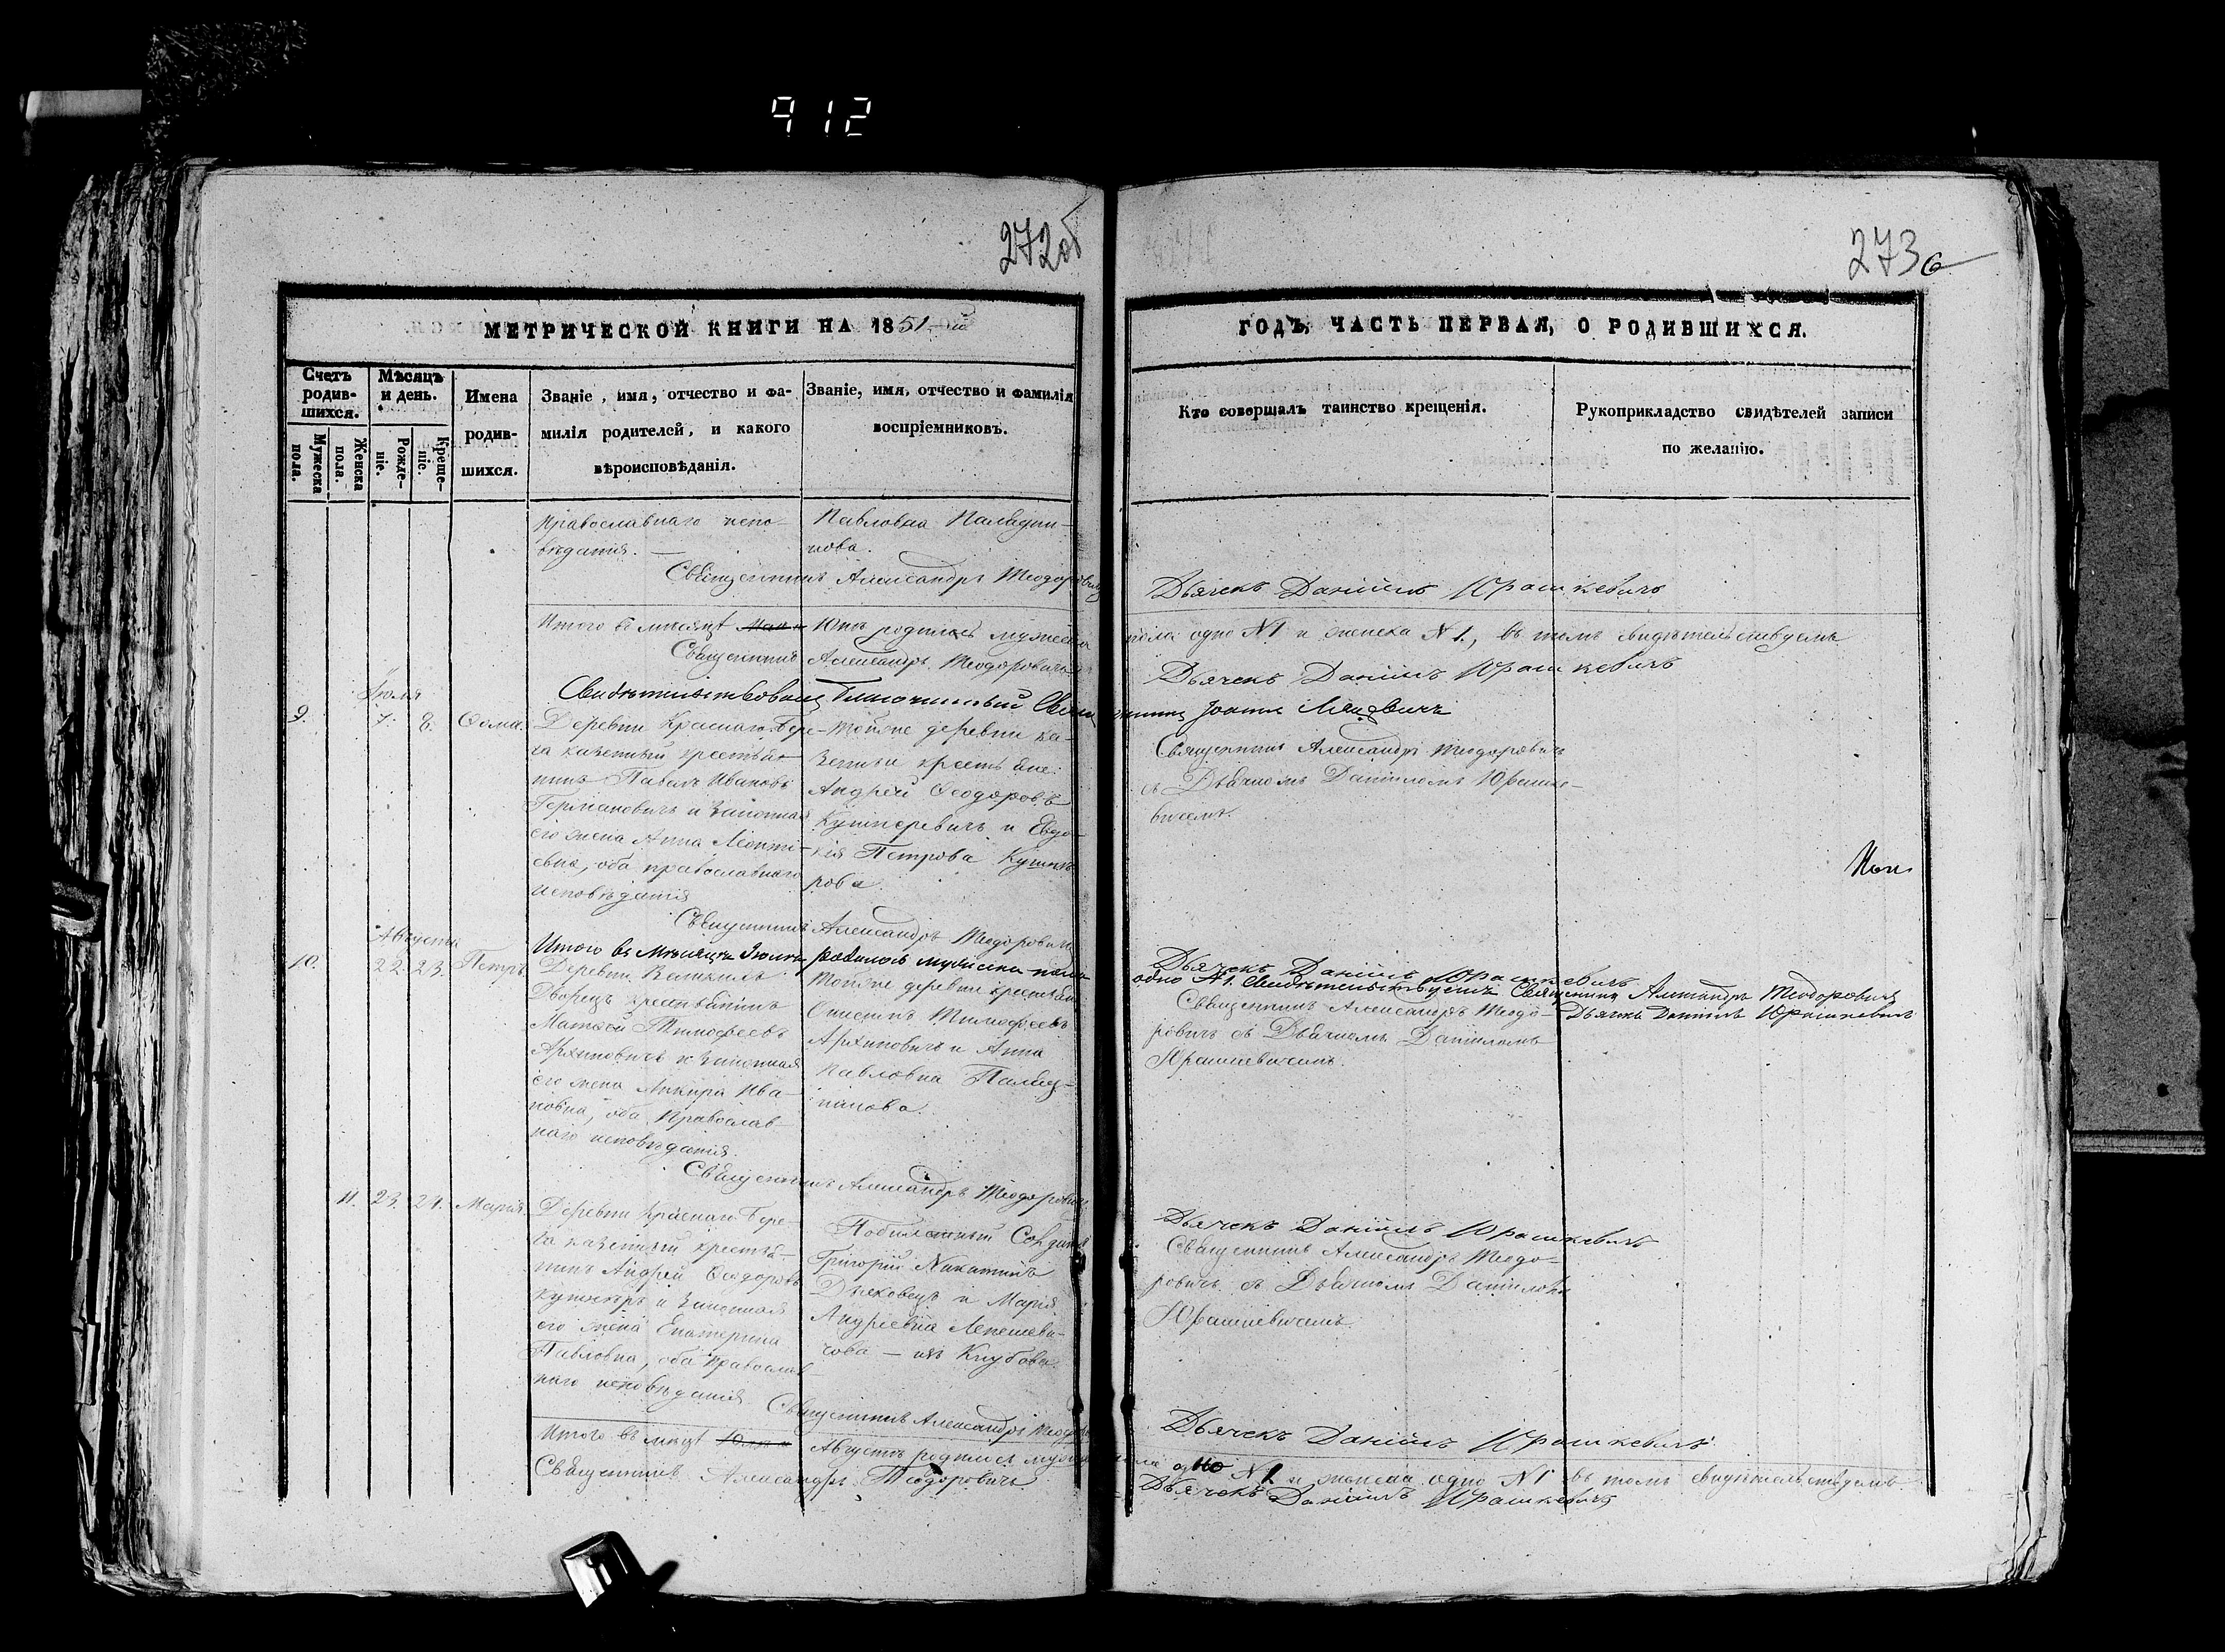 912
272об
273
6
МЕТРИЧЕСКОЙ КНИГИ НА 1851-й
ГОДЪ, ЧАСТЬ ПЕРВАЯ, О РОДИВШИХСЯ.
Счетъ родив-шихся.
Мужеска пола.
Женска пола.
Мѣсяцъ и день.
Рожде-ніе.
Креще-ніе.
Имена родив-шихся.
Званіе, имя, отчество и фа-
милія родителей, и какого
вѣроисповѣданія.
Званіе, имя, отчество и фамилія
воспріемниковъ.
Кто совершалъ таинство крещенія.
Рукоприкладство свидѣтелей записи
по желанію.
Православнаго испо-
вѣданія. —
Павловна
нова.
Священникъ Александръ Теодоровичъ
Дьячекъ Даніилъ Юрашкевичъ
Итого въ мѣсяцѣ Юнѣ родилось мужеска
пола одно №1 и женска №1., въ томъ свидѣтельствуемъ
Священникъ Александръ Теодоровичъ
Дьячекъ Даніилъ Юрашкевичъ
Свидѣтельствовалъ Благочинный Священникъ Іоаннъ
Іюля
9. 7. 8. Ѳома.
Деревни Краснаго-Бере-
га казенный крестья-
нинъ Павелъ Ивановъ
Германовичъ и законная
его жена Анна Леонті-
евна, оба православнаго
исповѣданія
Тойже деревни ка-
зенные крестьяне:
Андрей Ѳеодоровъ
Кушнеревичъ и Евдо-
кія Петрова Кушне-
рова.
Священникъ Александръ Теодоровичъ
съ Дьячкомъ Даніиломъ Юрашке-
вичемъ.
Священникъ Александръ Теодоровичъ
Дьячекъ Даніилъ Юрашкевичъ
Итого въ мѣсяцѣ Іюлѣ родилось мужеска пола
одно №1. Свидѣтельствуемъ Священникъ Александръ Теодоровичъ
Дьячекъ Даніилъ Юрашкевичъ
Августа
10. 22. 23. Петръ.
Деревни
Дворецъ крестьянинъ
Матвей Тимофеевъ
Архиповичъ и законная
его жена Ива-
новна, оба Православ-
наго исповѣданія.
Тойже деревни крестьяне
Тимофеевъ
Архиповичъ и Анна
Павловна
нова.
Священникъ Александръ Теодо-
ровичъ съ Дьячкомъ Даніиломъ
Юрашкевичемъ.
Священникъ Александръ Теодоровичъ
Дьячекъ Даніилъ Юрашкевичъ
11. 23. 24. Марія.
Деревни Краснаго-Бере-
га казенный крестья-
нинъ Андрей Ѳеодоровъ
Кушнеръ и законная
его жена Екатерина
Павловна, оба православ-
наго исповѣданія
Солдатъ
Григорій
и Марія
Андреевна
Священникъ Александръ Теодо-
ровичъ съ Дьячкомъ Даніиломъ
Юрашкевичемъ.
Священникъ Александръ Теодоровичъ
Дьячекъ Даніилъ Юрашкевичъ
Итого въ Августѣ родилось мужеска
пола одно №1 и женска одно №1 въ томъ свидѣтельствуемъ
Священникъ Александръ Теодоровичъ
Дьячекъ Даніилъ Юрашкевичъ